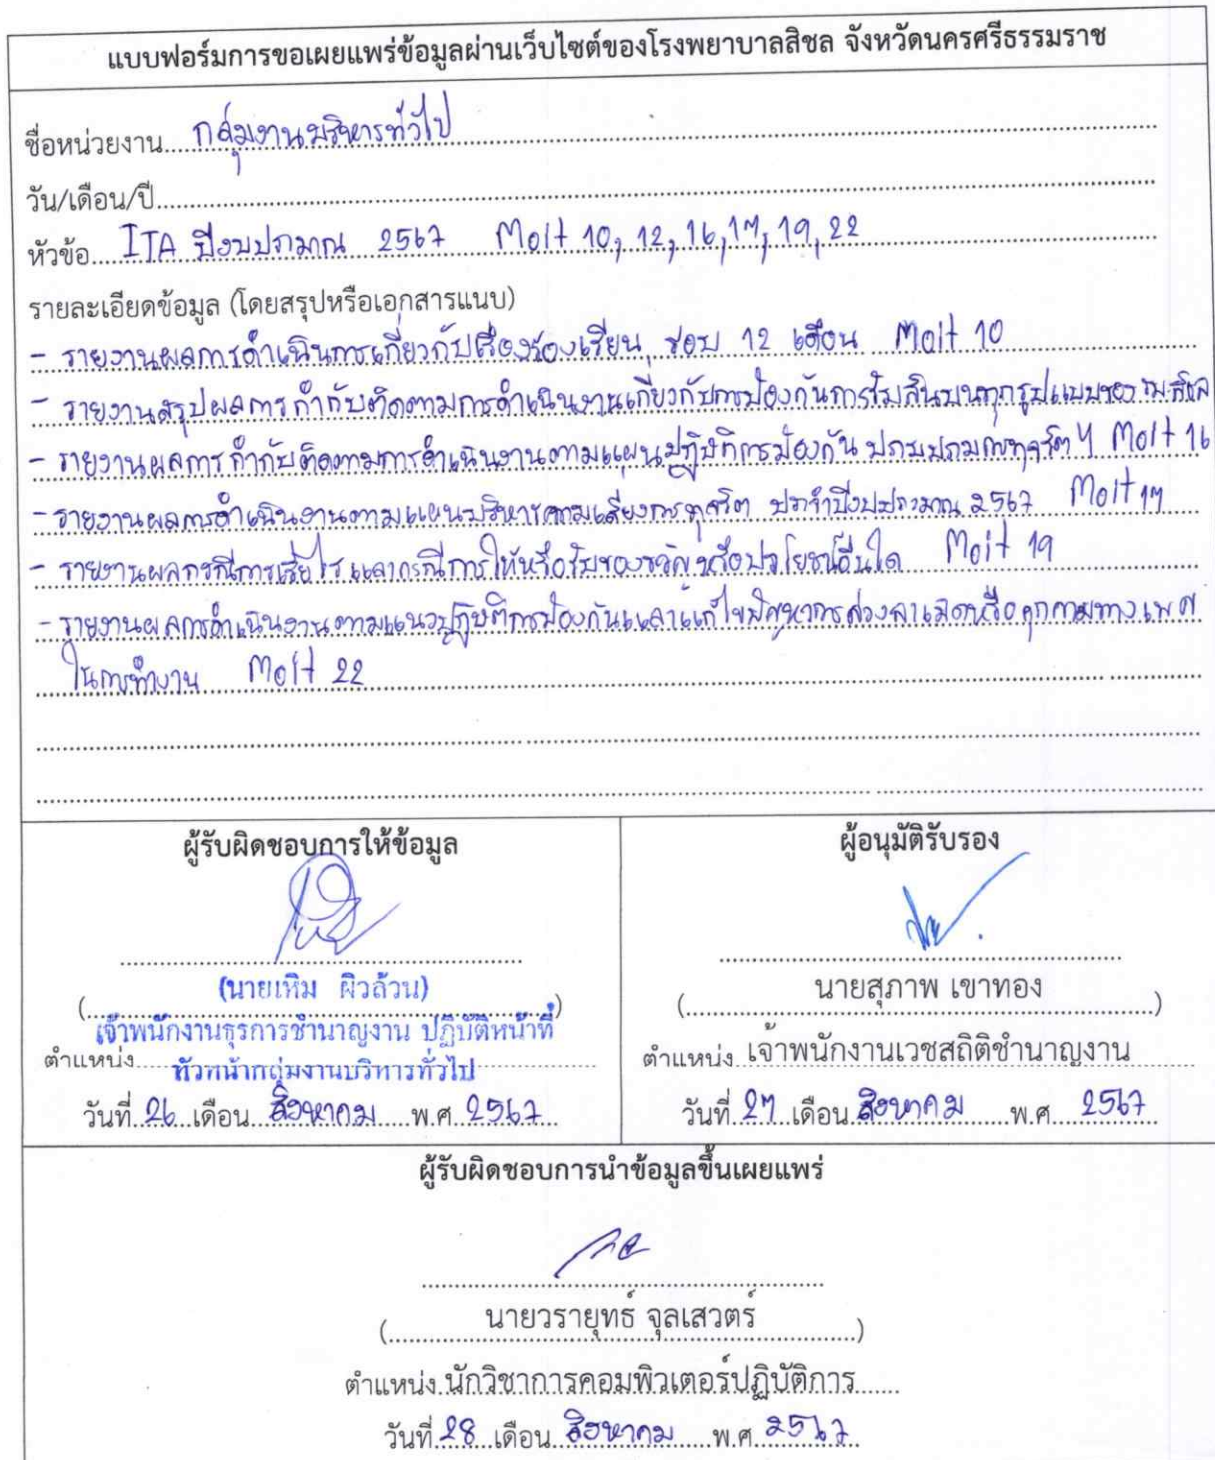 แบบฟอร์มการขอเผยแพร่ข้อมูลผ่านเว็บไซต์ของโรงพยาบาลสิชล จังหวัดนครศรีธรรมราช
ชื่อหน่วยงาน กลุ่มงานบริหารทั่วไป
วัน/เดือน/ปี
หัวข้อ ITA ปีงบประมาณ 2567 Moit 10, 12, 16, 17, 19, 22
รายละเอียดข้อมูล (โดยสรุปหรือเอกสารแนบ)
- รายงานผลการดำเนินการเกี่ยวกับเรื่องร้องเรียน รอบ 12 เดือน Moit 10
- รายงานสรุปผลการกำกับติดตามการดำเนินงานเกี่ยวกับการป้องกันการรับสินบนทุกรูปแบบของ รพ.สิชล
- รายงานผลการกำกับติดตามการดำเนินงานตามแผนปฏิบัติการป้องกัน ปราบปรามการทุจริตฯ Moit 16
- รายงานผลการดำเนินงานตามแผนบริหารความเสี่ยงการทุจริต ประจำปีงบประมาณ 2567 Moit 17
- รายงานผลกรณีการเรี่ยไร และกรณีการให้หรือรับของขวัญหรือประโยชน์อื่นใด Moit 19
- รายงานผลการดำเนินงานตามแนวปฏิบัติการป้องกันและแก้ไขปัญหาการล่วงละเมิดหรือคุกคามทางเพศ
ในการทำงาน Moit 22
ผู้รับผิดชอบการให้ข้อมูล
(นายเหิม ผิวล้วน)
เจ้าพนักงานธุรการชำนาญงาน ปฏิบัติหน้าที่
ตำแหน่ง หัวหน้ากลุ่มงานบริหารทั่วไป
วันที่ 26 เดือน สิงหาคม พ.ศ. 2567
ผู้อนุมัติรับรอง
(นายสุภาพ เขาทอง)
ตำแหน่ง เจ้าพนักงานเวชสถิติชำนาญงาน
วันที่ 27 เดือน สิงหาคม พ.ศ. 2567
ผู้รับผิดชอบการนำข้อมูลขึ้นเผยแพร่
(นายวรายุทธ์ จุลเสวตร์)
ตำแหน่ง นักวิชาการคอมพิวเตอร์ปฏิบัติการ
วันที่ 28 เดือน สิงหาคม พ.ศ. 2567